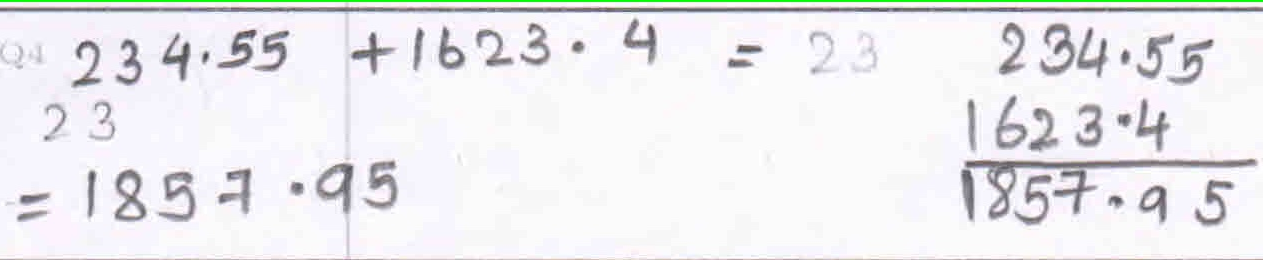 Q4 234.55 + 1623.4 = 23
23
= 1857.95
234.55
1623.4
1857.95